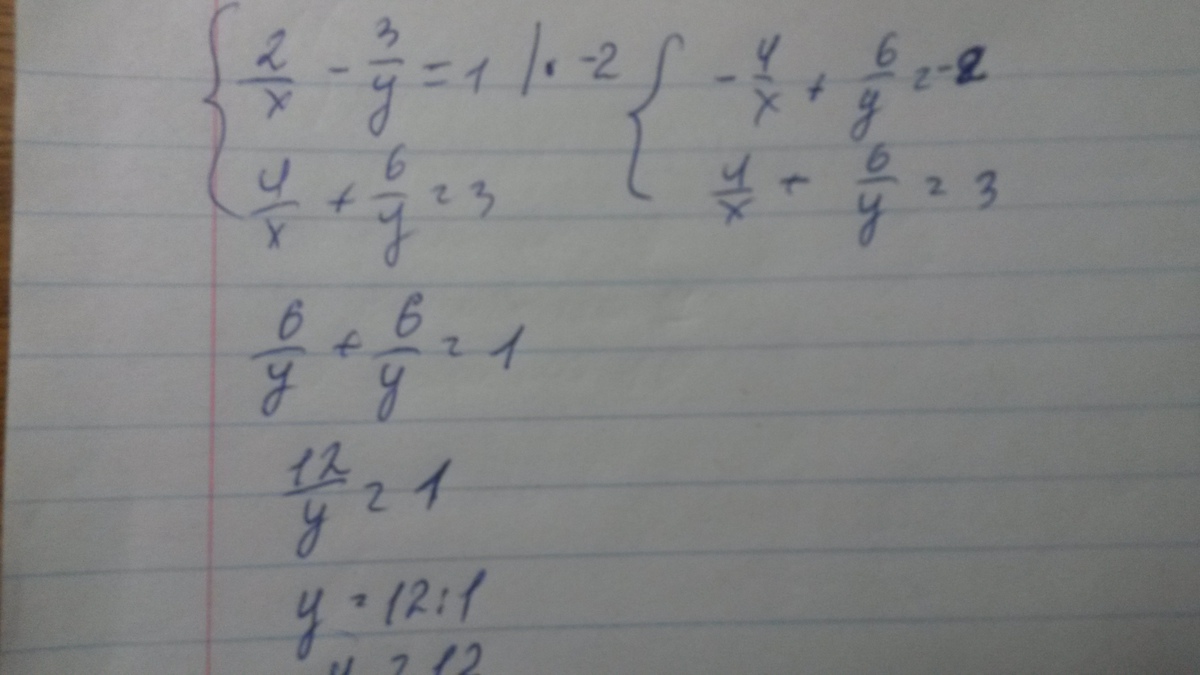 2/x - 3/y = 1 | · -2
4/x + 6/y = 3
-4/x + 6/y = -2
4/x + 6/y = 3
6/y + 6/y = 1
12/y = 1
y = 12:1
y = 12